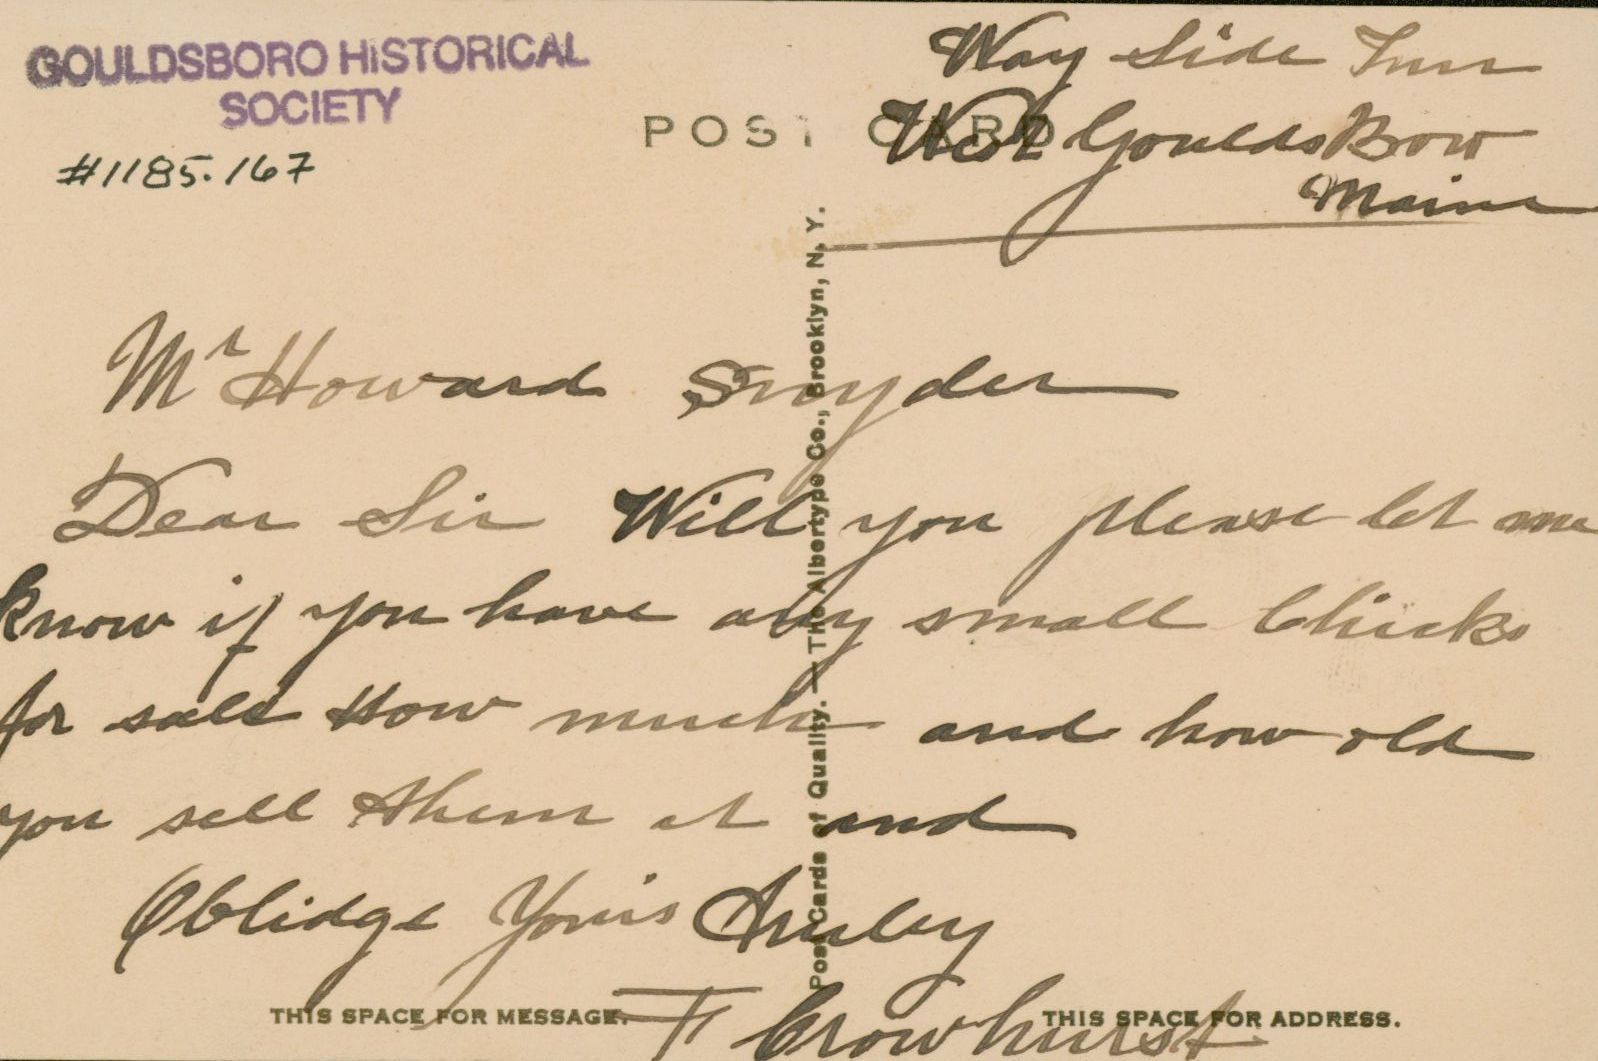 GOULDSBORO HISTORICAL
SOCIETY
#1185.167
POST CARD
Way Side Inn
West GouldsBoro
Maine
Mr Howard Snyder
Dear Sir Will you please let me
know if you have any small Chicks
for sale How much and how old
you sell them at and
Oblidge Yours Truley
F Crowhurst
Post Cards of Quality. — The Albertype Co., Brooklyn, N. Y.
THIS SPACE FOR MESSAGE.
THIS SPACE FOR ADDRESS.